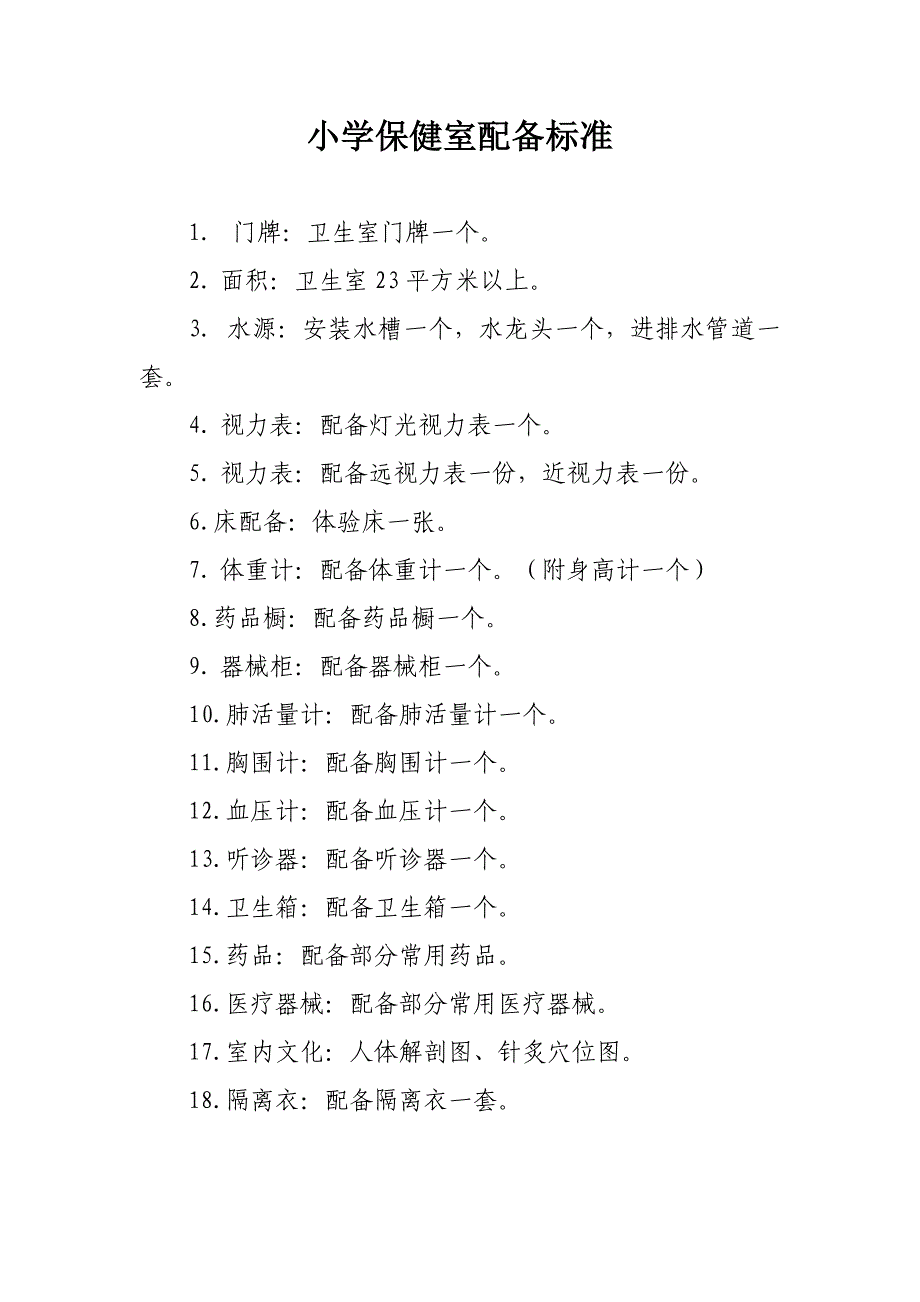 小学保健室配备标准
1. 门牌：卫生室门牌一个。
2. 面积：卫生室 23 平方米以上。
3. 水源：安装水槽一个，水龙头一个，进排水管道一
套。
4. 视力表：配备灯光视力表一个。
5. 视力表：配备远视力表一份，近视力表一份。
6.床配备：体验床一张。
7. 体重计：配备体重计一个。（附身高计一个）
8.药品橱：配备药品橱一个。
9. 器械柜：配备器械柜一个。
10.肺活量计：配备肺活量计一个。
11.胸围计：配备胸围计一个。
12.血压计：配备血压计一个。
13.听诊器：配备听诊器一个。
14.卫生箱：配备卫生箱一个。
15.药品：配备部分常用药品。
16.医疗器械：配备部分常用医疗器械。
17.室内文化：人体解剖图、针炙穴位图。
18.隔离衣：配备隔离衣一套。